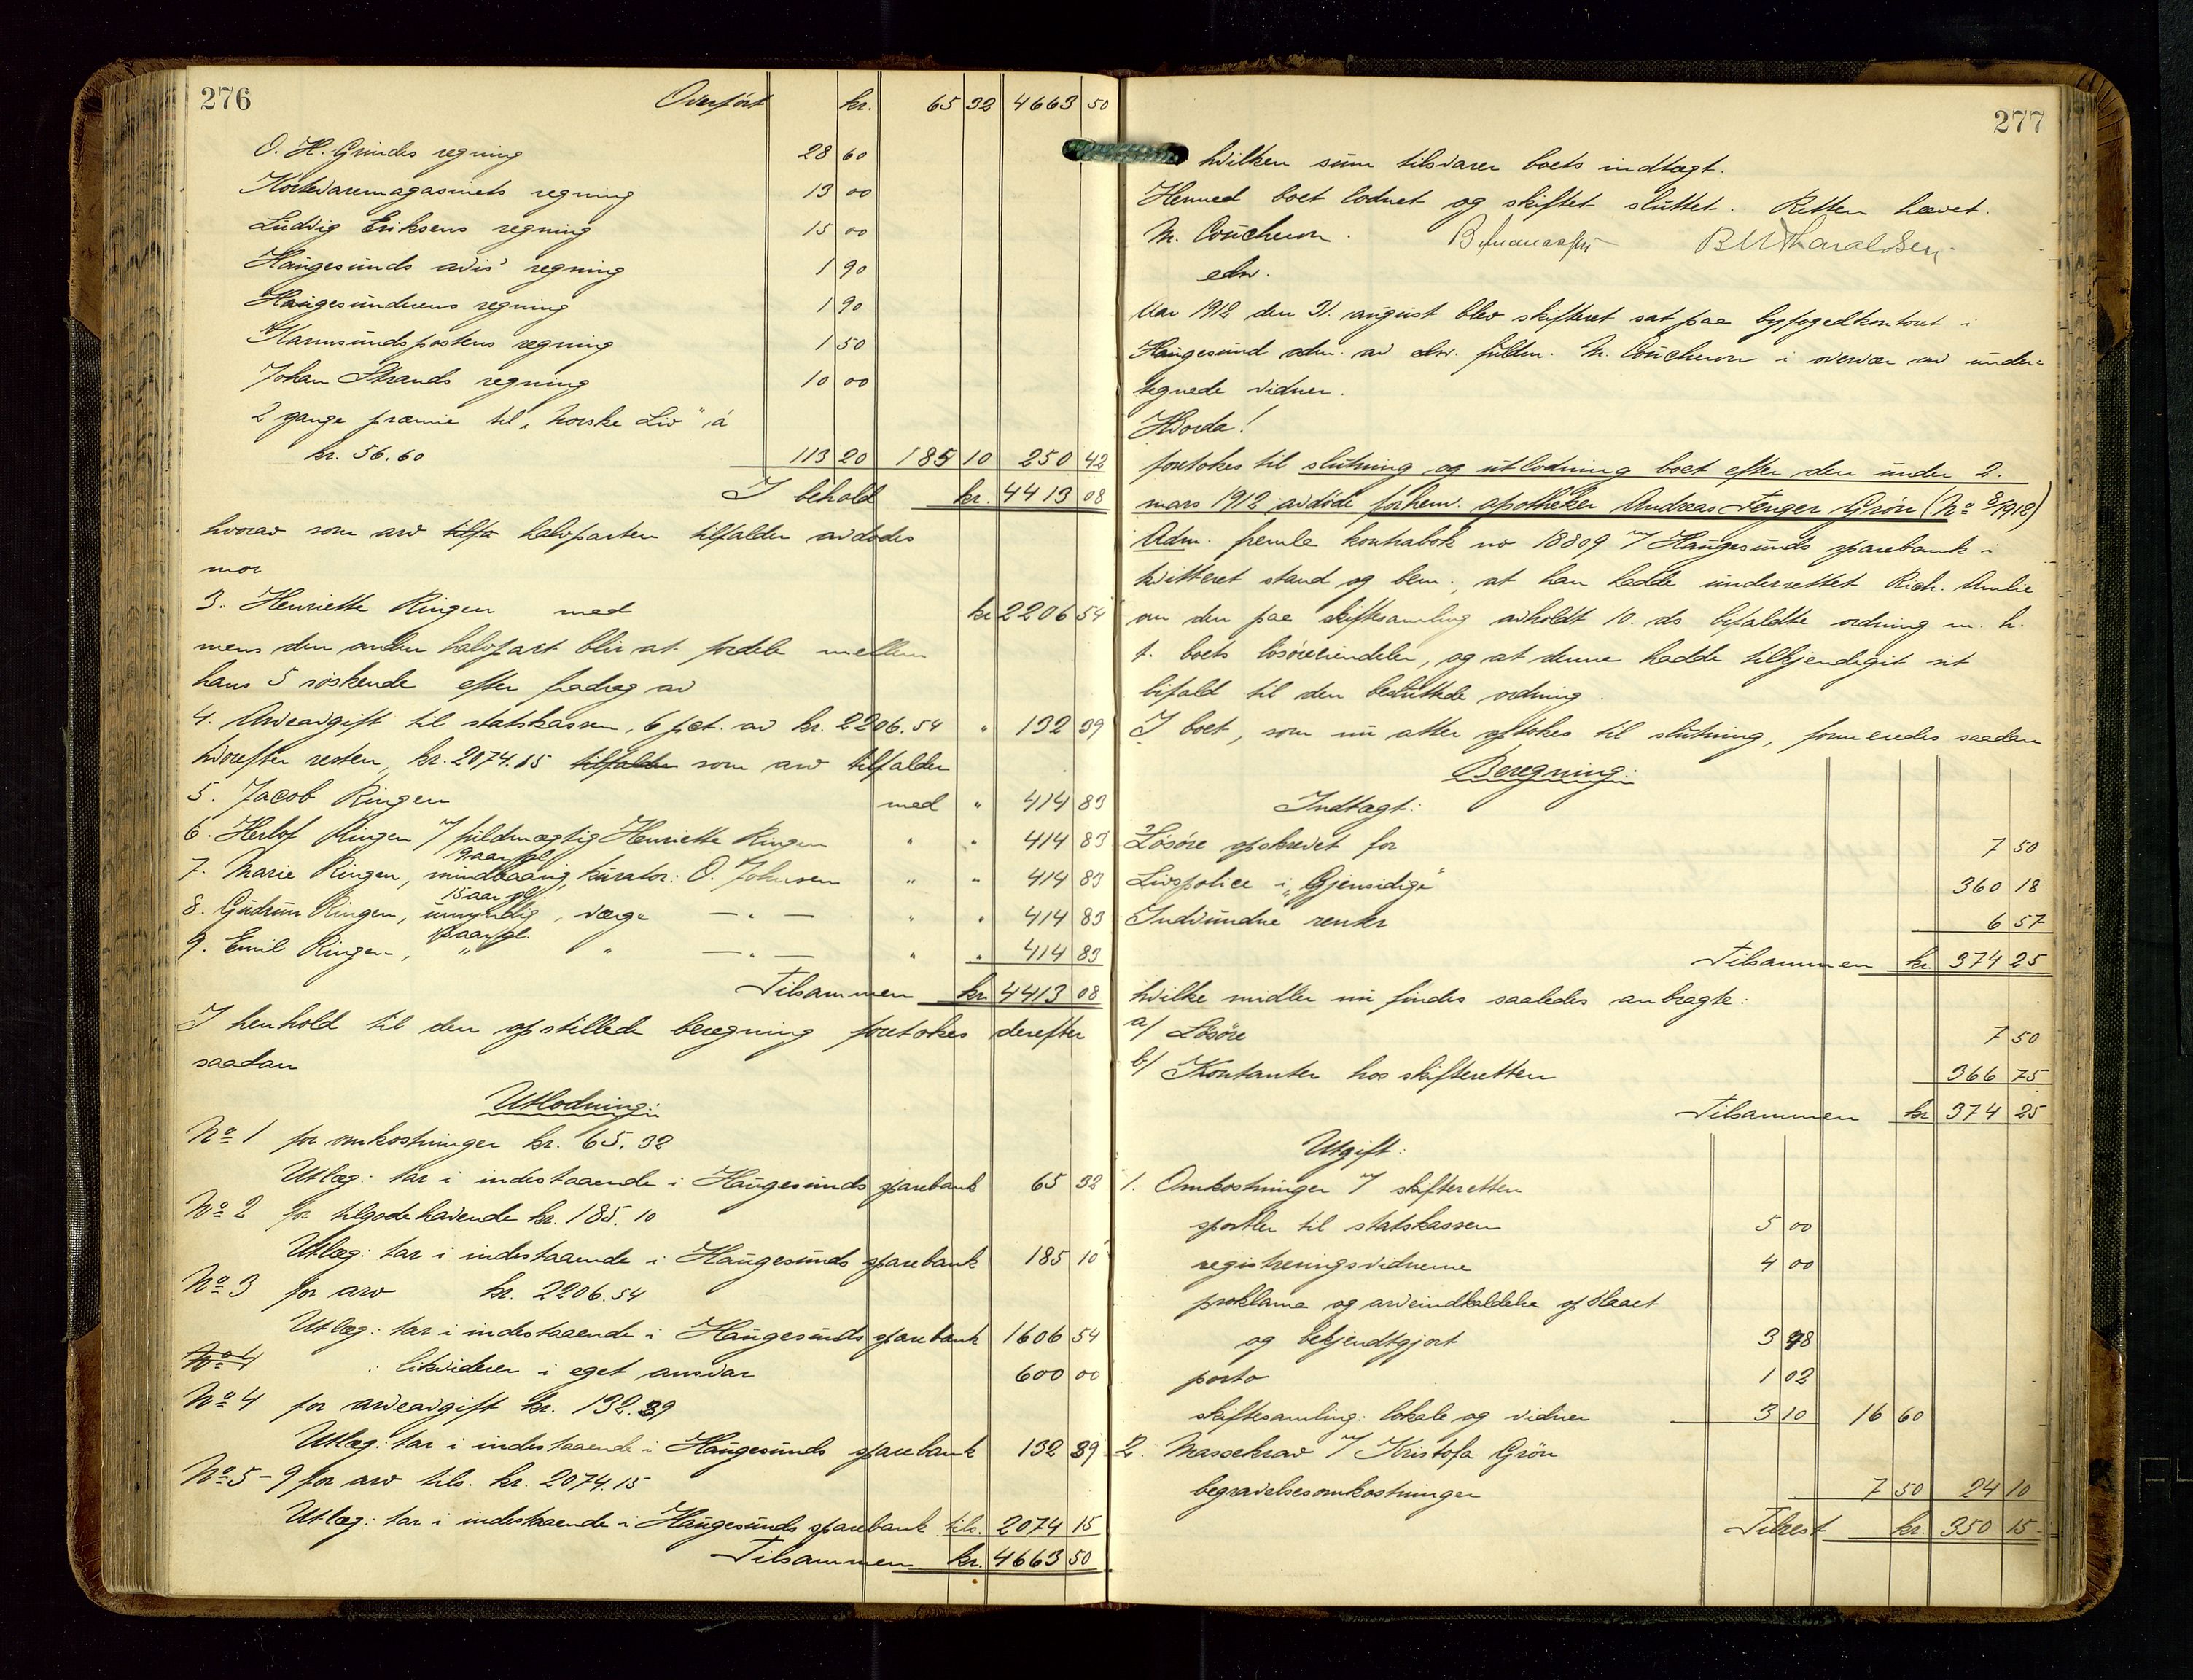 276
Overført kr. 65 32 4663 50
O. H. Grindes regning 28 60
Kortevaremagasinets regning 13 00
Ludvig Eriksens regning 15 00
Haugesunds avis' regning 1 90
Haugesunderens regning 1 90
Karmsundspostens regning 1 50
Johan Strands regning 10 00
2 gange præmie til „Norske Liv" á
kr. 56.60 113 20 185 10 250 42
I behold kr. 4413 08
hvorav som arv tilfa halvparten tilfalder avdødes
mor
3. Henriette Ringen med kr 2206 54
mens den anden halvpart blir at fordele mellem
hans 5 søskende efter fradrag av
4. Arveavgift til statskassen, 6 pct. av kr. 2206.54 " 132 39
hvorefter resten, kr. 2074.15 tilfalder som arv tilfalder
5. Jacob Ringen med " 414 83
6. Herlof Ringen v/ fuldmægtig Henriette Ringen " " 414 83
19 aar gl.
7. Marie Ringen, mindreaarig, kurator: O. Johnsen " " 414 83
15 aar gl.
8. Gudrun Ringen, umyndig, værge — " — " " 414 83
13 aar gl.
9. Emil Ringen, " " — " — " " 414 83
Tilsammen kr. 4413 08
I henhold til den opstillede beregning foretokes derefter
saadan
Utlodning:
No 1 for omkostninger kr. 65.32
Utlæg: tar i indestaaende i Haugesunds sparebank 65 32
No 2 for tilgodehavende kr. 185.10
Utlæg: tar i indestaaende i Haugesunds sparebank 185 10
No 3 for arv kr. 2206.54
Utlæg: tar i indestaaende i Haugesunds sparebank 1606 54
No 4 : likviderer i eget ansvar 600 00
No 4 for arveavgift kr. 132.39
Utlæg: tar i indestaaende i Haugesunds sparebank 132 39
No 5-9 for arv tils. kr. 2074.15
Utlæg: tar i indestaaende i Haugesunds sparebank tils. 2074 15
Tilsammen kr. 4663 50
277
hvilken sum tilsvarer boets indtægt.
Hermed boet lodnet og skiftet sluttet. Retten hævet.
N. Coucheron.
edsv.
Aar 1912 den 31. august blev skifteret sat paa byfogedkontoret i
Haugesund adm. av edsv. fuldm. N. Coucheron i overvær av under-
tegnede vidner.
Hvorda!
foretokes til slutning og utlodning boet efter den under 2.
mars 1912 avdøde forhenv. apotheker Andreas Fenger Grøn (No 8/1912)
Adm. fremla kontrabok no 18809 v/ Haugesunds sparebank i
kvitteret stand og bem., at han hadde underrettet Rich. Amlie
om den paa skiftesamling avholdt 10. ds bifaldte ordning m. h.
t. boets løsøreeiendeler, og at denne hadde tilkjendegit sit
bifald til den besluttede ordning.
I boet, som nu atter optokes til slutning, formeredes saadan
Beregning:
Indtægt:
Løsøre opskrevet for 7 50
Livspolice i „Gjensidige" 360 18
Indvundne renter 6 57
Tilsammen kr. 374 25
hvilke midler nu findes saaledes anbragte:
a/ Løsøre 7 50
b/ Kontanter hos skifteretten 366 75
Tilsammen kr 374 25
Utgift:
1. Omkostninger v/ skifteretten
sportler til statskassen 5 00
registreringsvidnerne 4 00
proklama og arveindkaldelse opslaaet
og bekjendtgjort 3 48
porto 1 02
skiftesamling: lokale og vidner 3 10 16 60
2. Massekrav v/ Kristofa Grøn
begravelsesomkostninger 7 50 24 10
Tilrest kr. 350 15